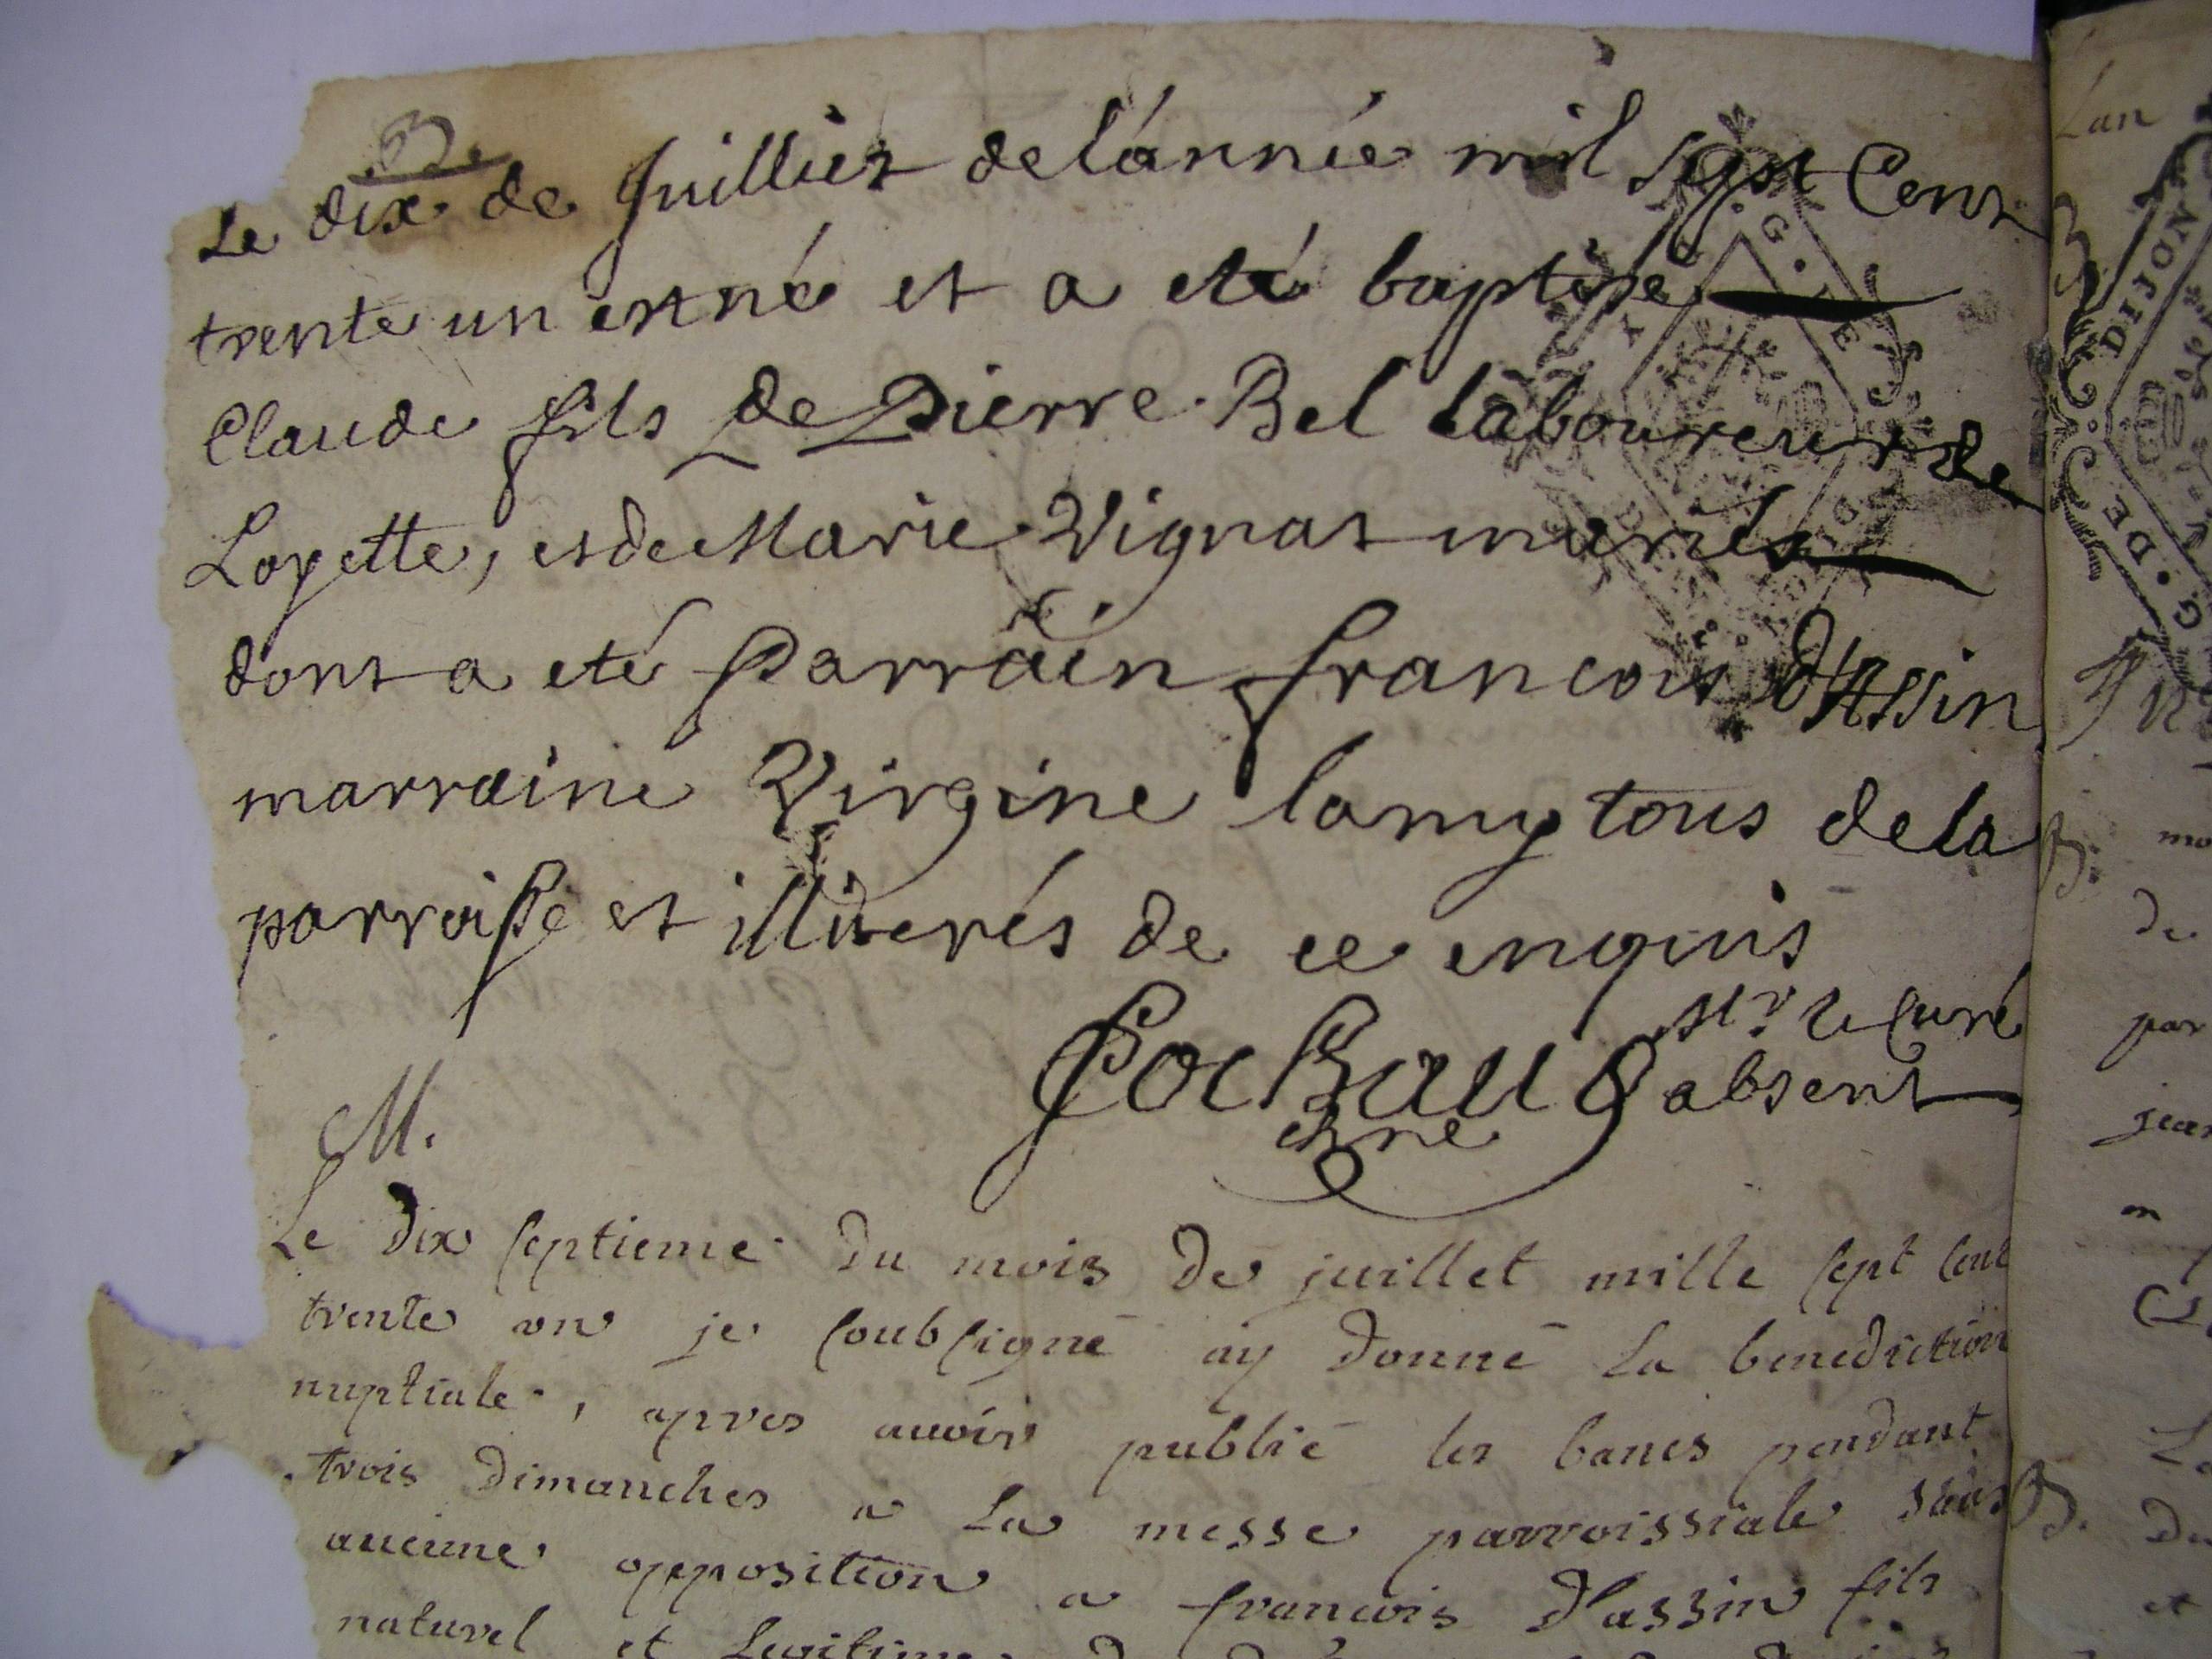 B.
Le dix de Juilliet de l'année mil sept Cent
trente un est né et a eté baptisé
Claude fils de Pierre Bel laboureur de
Loyette, et de Marie Vignat mariés
dont a eté parrain francois d'Assin
marraine Virgine lamy tous de la
parroisse et illiterés de ce enquis
Mr le Curé
absent
M.
Le dix septieme du mois de juillet mille sept cent
trente un je soubsigné ay donné la benediction
nuptiale, apres auoir publié les bancs pendant
trois dimanches a la messe parroissiale sans
aucune opposition a francois d'assin fils
naturel et legitime
Lan
DIJON
G. DE
B.
mo
de
par
jean
en
B.
et